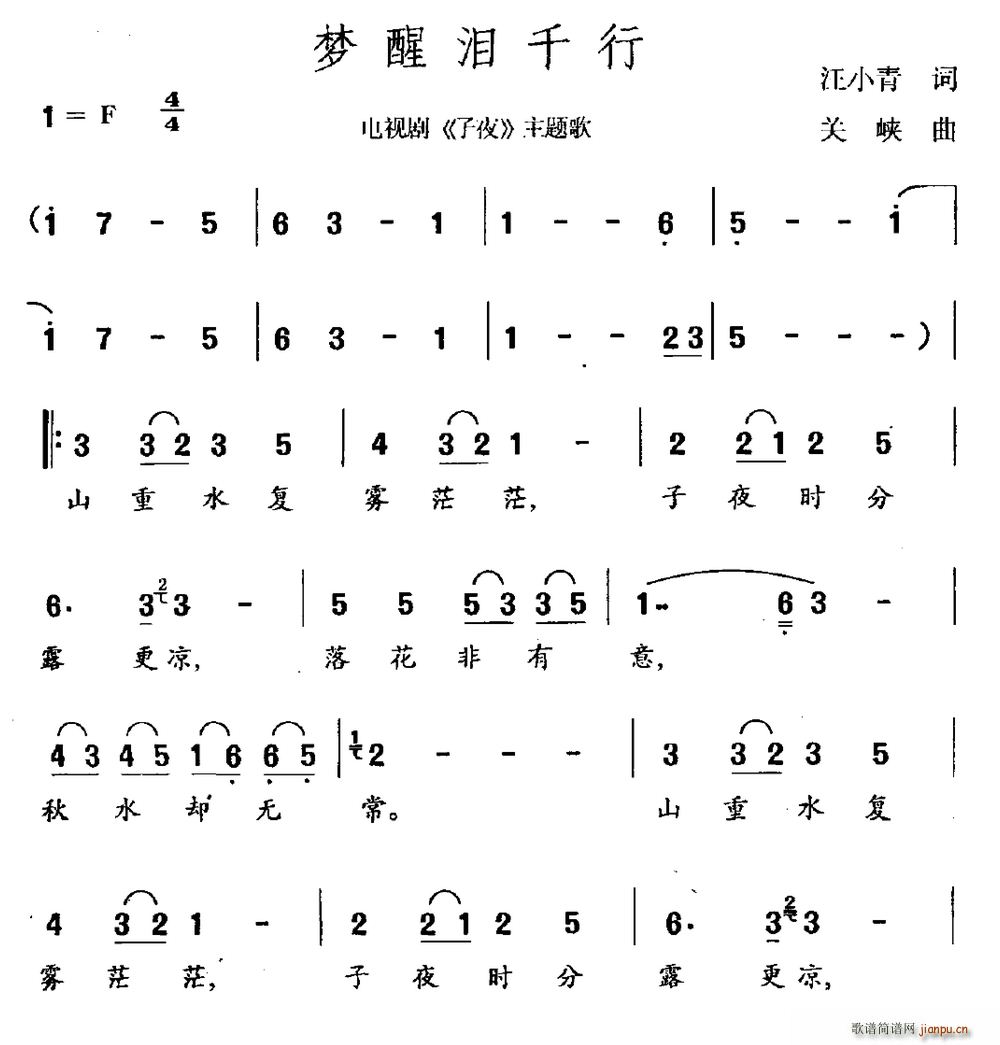 梦醒泪千行
1 = F 4/4
电视剧《子夜》主题歌
汪小青 词
关 峡 曲
( i 7 - 5 | 6 3 - 1 | 1 - - 6 | 5 - - i |
i 7 - 5 | 6 3 - 1 | 1 - - 2 3 | 5 - - - ) |
‖: 3 3 2 3 5 | 4 3 2 1 - | 2 2 1 2 5 |
山 重 水 复 雾 茫 茫, 子 夜 时 分
6. 3 2 3 - | 5 5 5 3 3 5 | 1.. 6 3 - |
露 更 凉, 落 花 非 有 意,
4 3 4 5 1 6 6 5 | 1 2 - - - | 3 3 2 3 5 |
秋 水 却 无 常。 山 重 水 复
4 3 2 1 - | 2 2 1 2 5 | 6. 3 2 3 - |
雾 茫 茫, 子 夜 时 分 露 更 凉,
歌谱简谱网 jianpu.cn